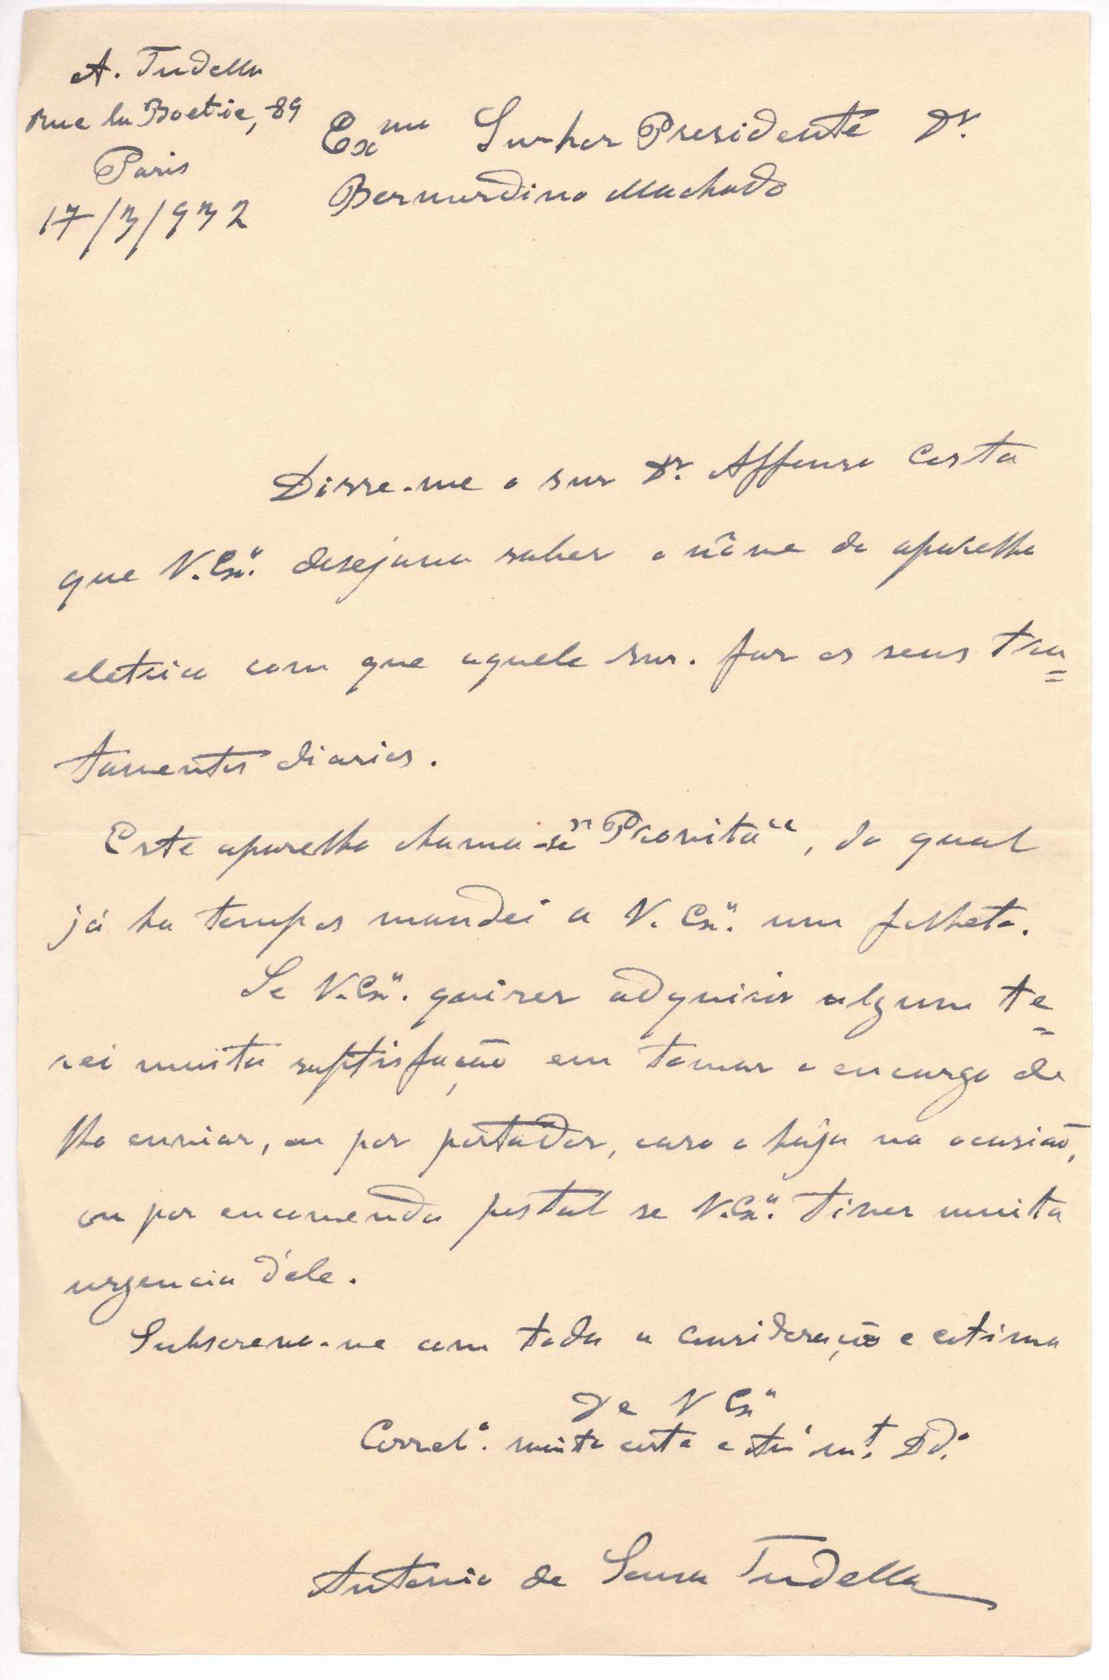 A. Tudella
rue la Boetie, 89
Paris
17/3/932
Exmo Senhor Presidente Dr.
Bernardino Machado
Disse-me o snr Dr. Affonso Costa
que V. Exª. desejava saber o nôme do aparelho
eletrico com que aquele snr. faz os seus tra=
tamentos diarios.
Este aparelho chama-se "Provita", do qual
já ha tempos mandei a V. Exª. um folheto.
Se V. Exª. quizer adquirir algum te=
rei muita satisfação em tomar o encargo de
lho enviar, ou por portador, caso o haja na ocasião,
ou por encomenda postal se V. Exª. tiver muita
urgencia d'ele.
Subscrevo-me com toda a consideração e estima
De V Exª
Correlº. muito certo e
Antonio de Sousa Tudella